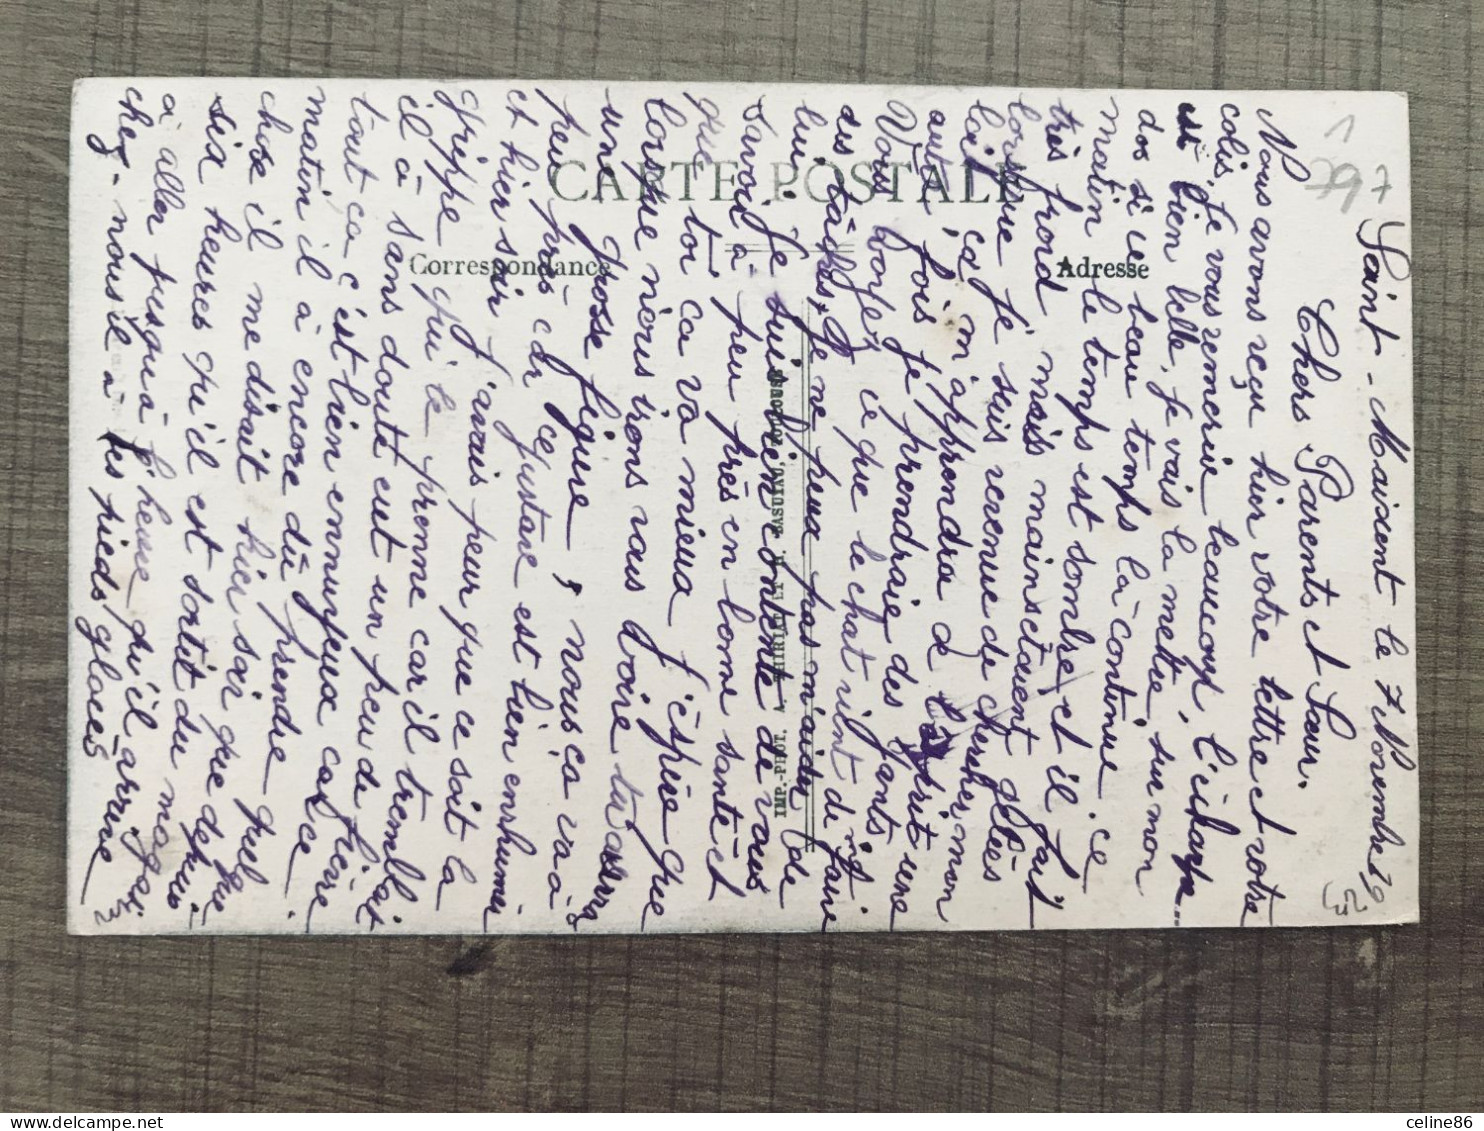 Saint-Maixent le 7 Novembre 19
Chers Parents et Sœur.
Nous avons reçu hier votre lettre et votre
colis, je vous remercie beaucoup, l'écharpe
est bien belle, je vais la mettre sur mon
dos si ce beau temps là continue. ce
matin le temps est sombre et il fait
très froid, mais mains étaient gelées
lorsque je suis revenue de chercher mon
lait, ça m'apprendra à
autre fois je prendraie des gants
Vous voyez ce que le chat vint de faire
des tâches, je ne peux pas m'aider de
lui. Je suis bien contente de vous
savoir à peu près en bonne santé et
que toi ca va mieux j'éspère que
lorsque nous irons vous voire tu auras
une grosse figure, nous ça va à
peu près car Gustave est bien enrhumé
et hier soir j'avais peur que ce soit la
grippe qui le prenne car il tremblait
il à sans doute eut un peu de
tout ça c'est bien ennuyeux car ce
matin il à encore dû prendre quelque
chose il me disait hier soir que depuis
six heures qu'il est sortit du magasin
à aller jusqu'à l'heure qu'il arrive
chez-nous il à les pieds glacés
CARTE POSTALE
Correspondance
Adresse
IMP.-PHOT. A. THIRIAT ET H. BASUYAU, TOULOUSE
1
797
celine86